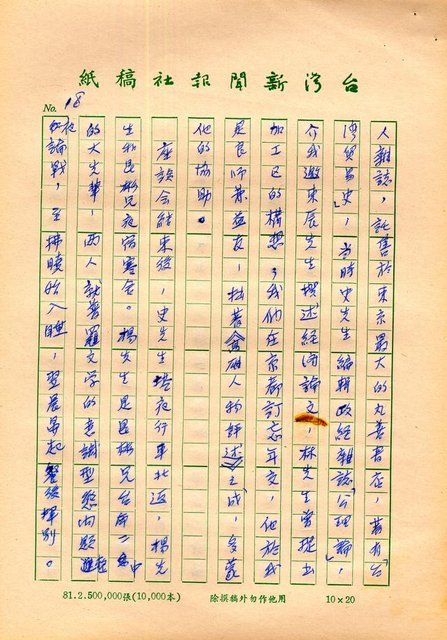 台灣新聞報社稿紙
No. 18
人雜誌，託售於東京最大的丸善書店，著有「台
灣貿易史」，當時史先生編輯政經雜誌「公理論」，
介我邀東辰先生撰述經濟論文，林先生曾提出
加工區的構想，我們在京都訂忘年交，他於我
是良師兼益友，拙著 人物評述之成，多蒙
他的協助。
座談會結束後，史先生搭夜行車北返，楊先
生和昆彬兄夜宿寒舍。楊先生是昆彬兄台南二中
的大先輩，兩人就著羅文學的意識型態問題進行
夜論戰，至拂曉始入睡，翌晨早起餐後揮別。
81.2.500,000張(10,000本)
除撰稿外勿作他用
10×20